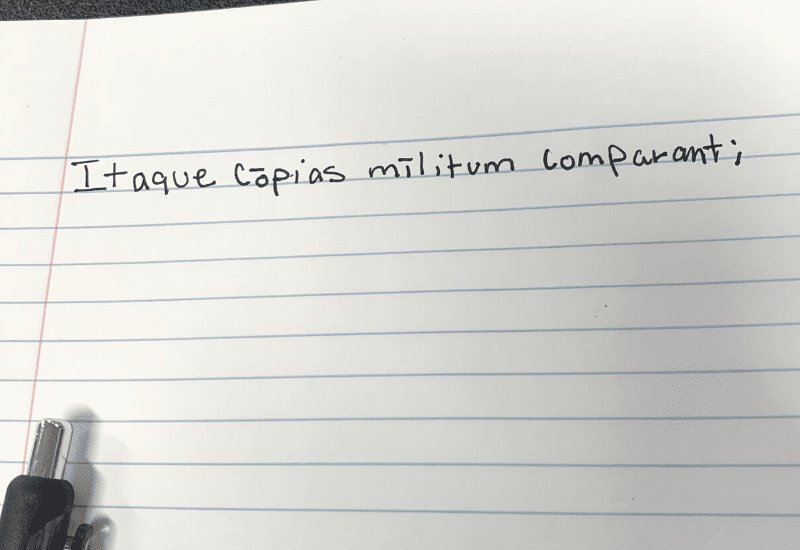 Itaque cōpias mīlitum comparant;